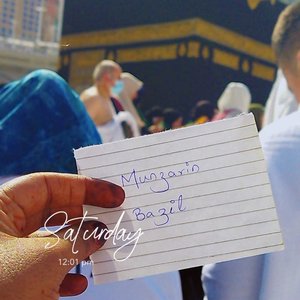 Munzarin
Bazil
Saturday
12:01 pm